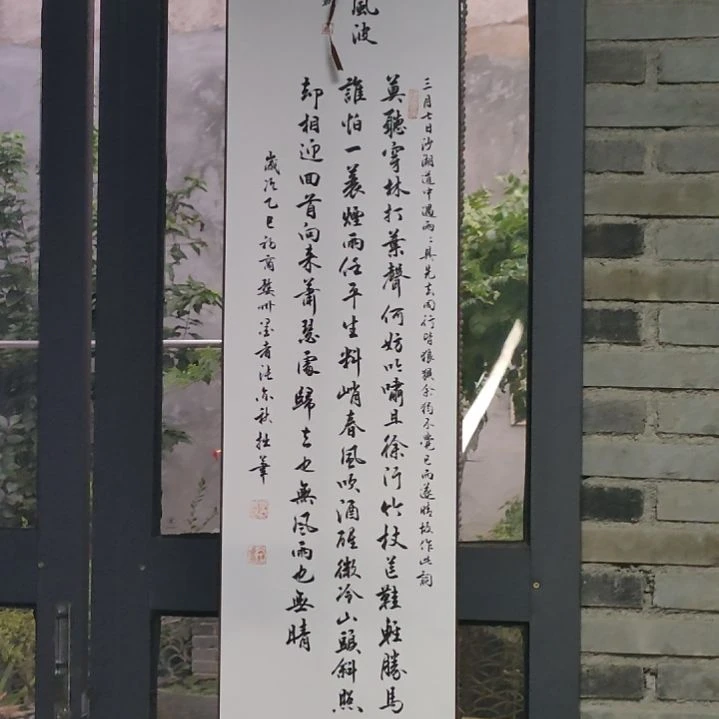 風波
三月七日沙湖道中遇雨〻具先去同行皆狼狽余獨不覺已而遂晴故作此詞
莫聽穿林打葉聲何妨吟嘯且徐行竹杖芒鞋輕勝馬
誰怕一蓑煙雨任平生料峭春風吹酒醒微冷山頭斜照
却相迎回首向来蕭瑟處歸去也無風雨也無晴
歲次乙巳初商婺州墨者